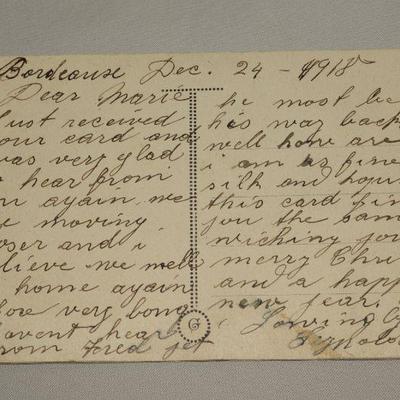 Bordeause Dec. 24 - 1918
Dear Marie
Just received
our card and
was very glad
hear from
ou again we
e moving
oser and i
elieve we well
home again
fore very long
avent hear
from Fred jet
he most be
his way back
well how are
i am as fine
silk and hop
this card fin
you the sam
wiching you
merry Chri
and a happ
new jear.
Loving
G